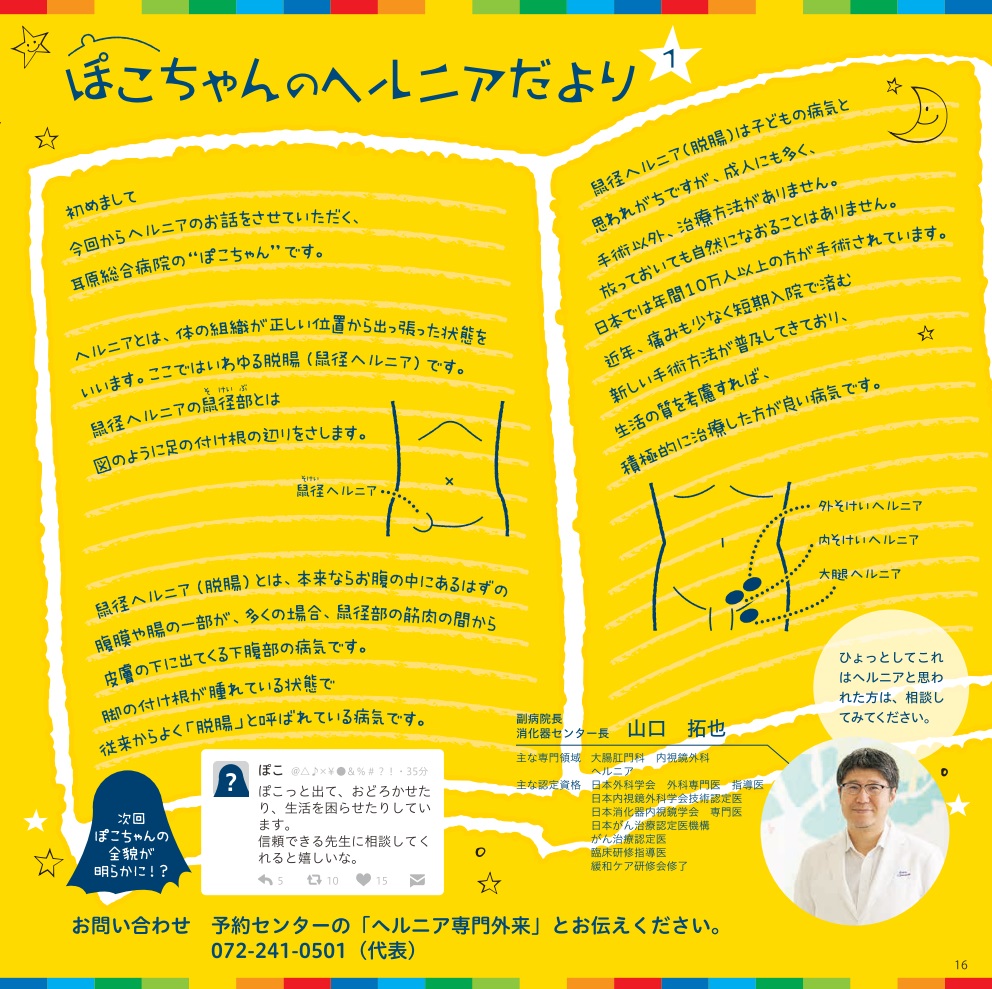 ぽこちゃんのヘルニアだより
1
初めまして
今回からヘルニアのお話をさせていただく、
耳原総合病院の“ぽこちゃん”です。
ヘルニアとは、体の組織が正しい位置から出っ張った状態を
いいます。ここではいわゆる脱腸（鼠径ヘルニア）です。
そけいぶ
鼠径ヘルニアの鼠径部とは
図のように足の付け根の辺りをさします。
そけい
鼠径ヘルニア
鼠径ヘルニア（脱腸）とは、本来ならお腹の中にあるはずの
腹膜や腸の一部が、多くの場合、鼠径部の筋肉の間から
皮膚の下に出てくる下腹部の病気です。
脚の付け根が腫れている状態で
従来からよく「脱腸」と呼ばれている病気です。
鼠径ヘルニア（脱腸）は子どもの病気と
思われがちですが、成人にも多く、
手術以外、治療方法がありません。
放っておいても自然になおることはありません。
日本では年間10万人以上の方が手術されています。
近年、痛みも少なく短期入院で済む
新しい手術方法が普及してきており、
生活の質を考慮すれば、
積極的に治療した方が良い病気です。
外そけいヘルニア
内そけいヘルニア
大腿ヘルニア
ひょっとしてこれ
はヘルニアと思わ
れた方は、相談し
てみてください。
副病院長
消化器センター長　山口　拓也
主な専門領域　大腸肛門科　内視鏡外科
ヘルニア
主な認定資格　日本外科学会　外科専門医　指導医
日本内視鏡外科学会技術認定医
日本消化器内視鏡学会　専門医
日本がん治療認定医機構
がん治療認定医
臨床研修指導医
緩和ケア研修会修了
次回
ぽこちゃんの
全貌が
明らかに！？
?
ぽこ ＠△♪×￥●＆％＃？！・35分
ぽこっと出て、おどろかせた
り、生活を困らせたりしてい
ます。
信頼できる先生に相談してく
れると嬉しいな。
5 10 15
お問い合わせ　予約センターの「ヘルニア専門外来」とお伝えください。
072-241-0501（代表）
16